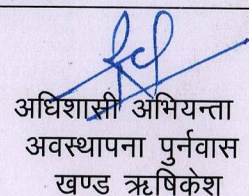 अधिशासी अभियन्ता
अवस्थापना पुर्नवास
खण्ड ऋषिकेश